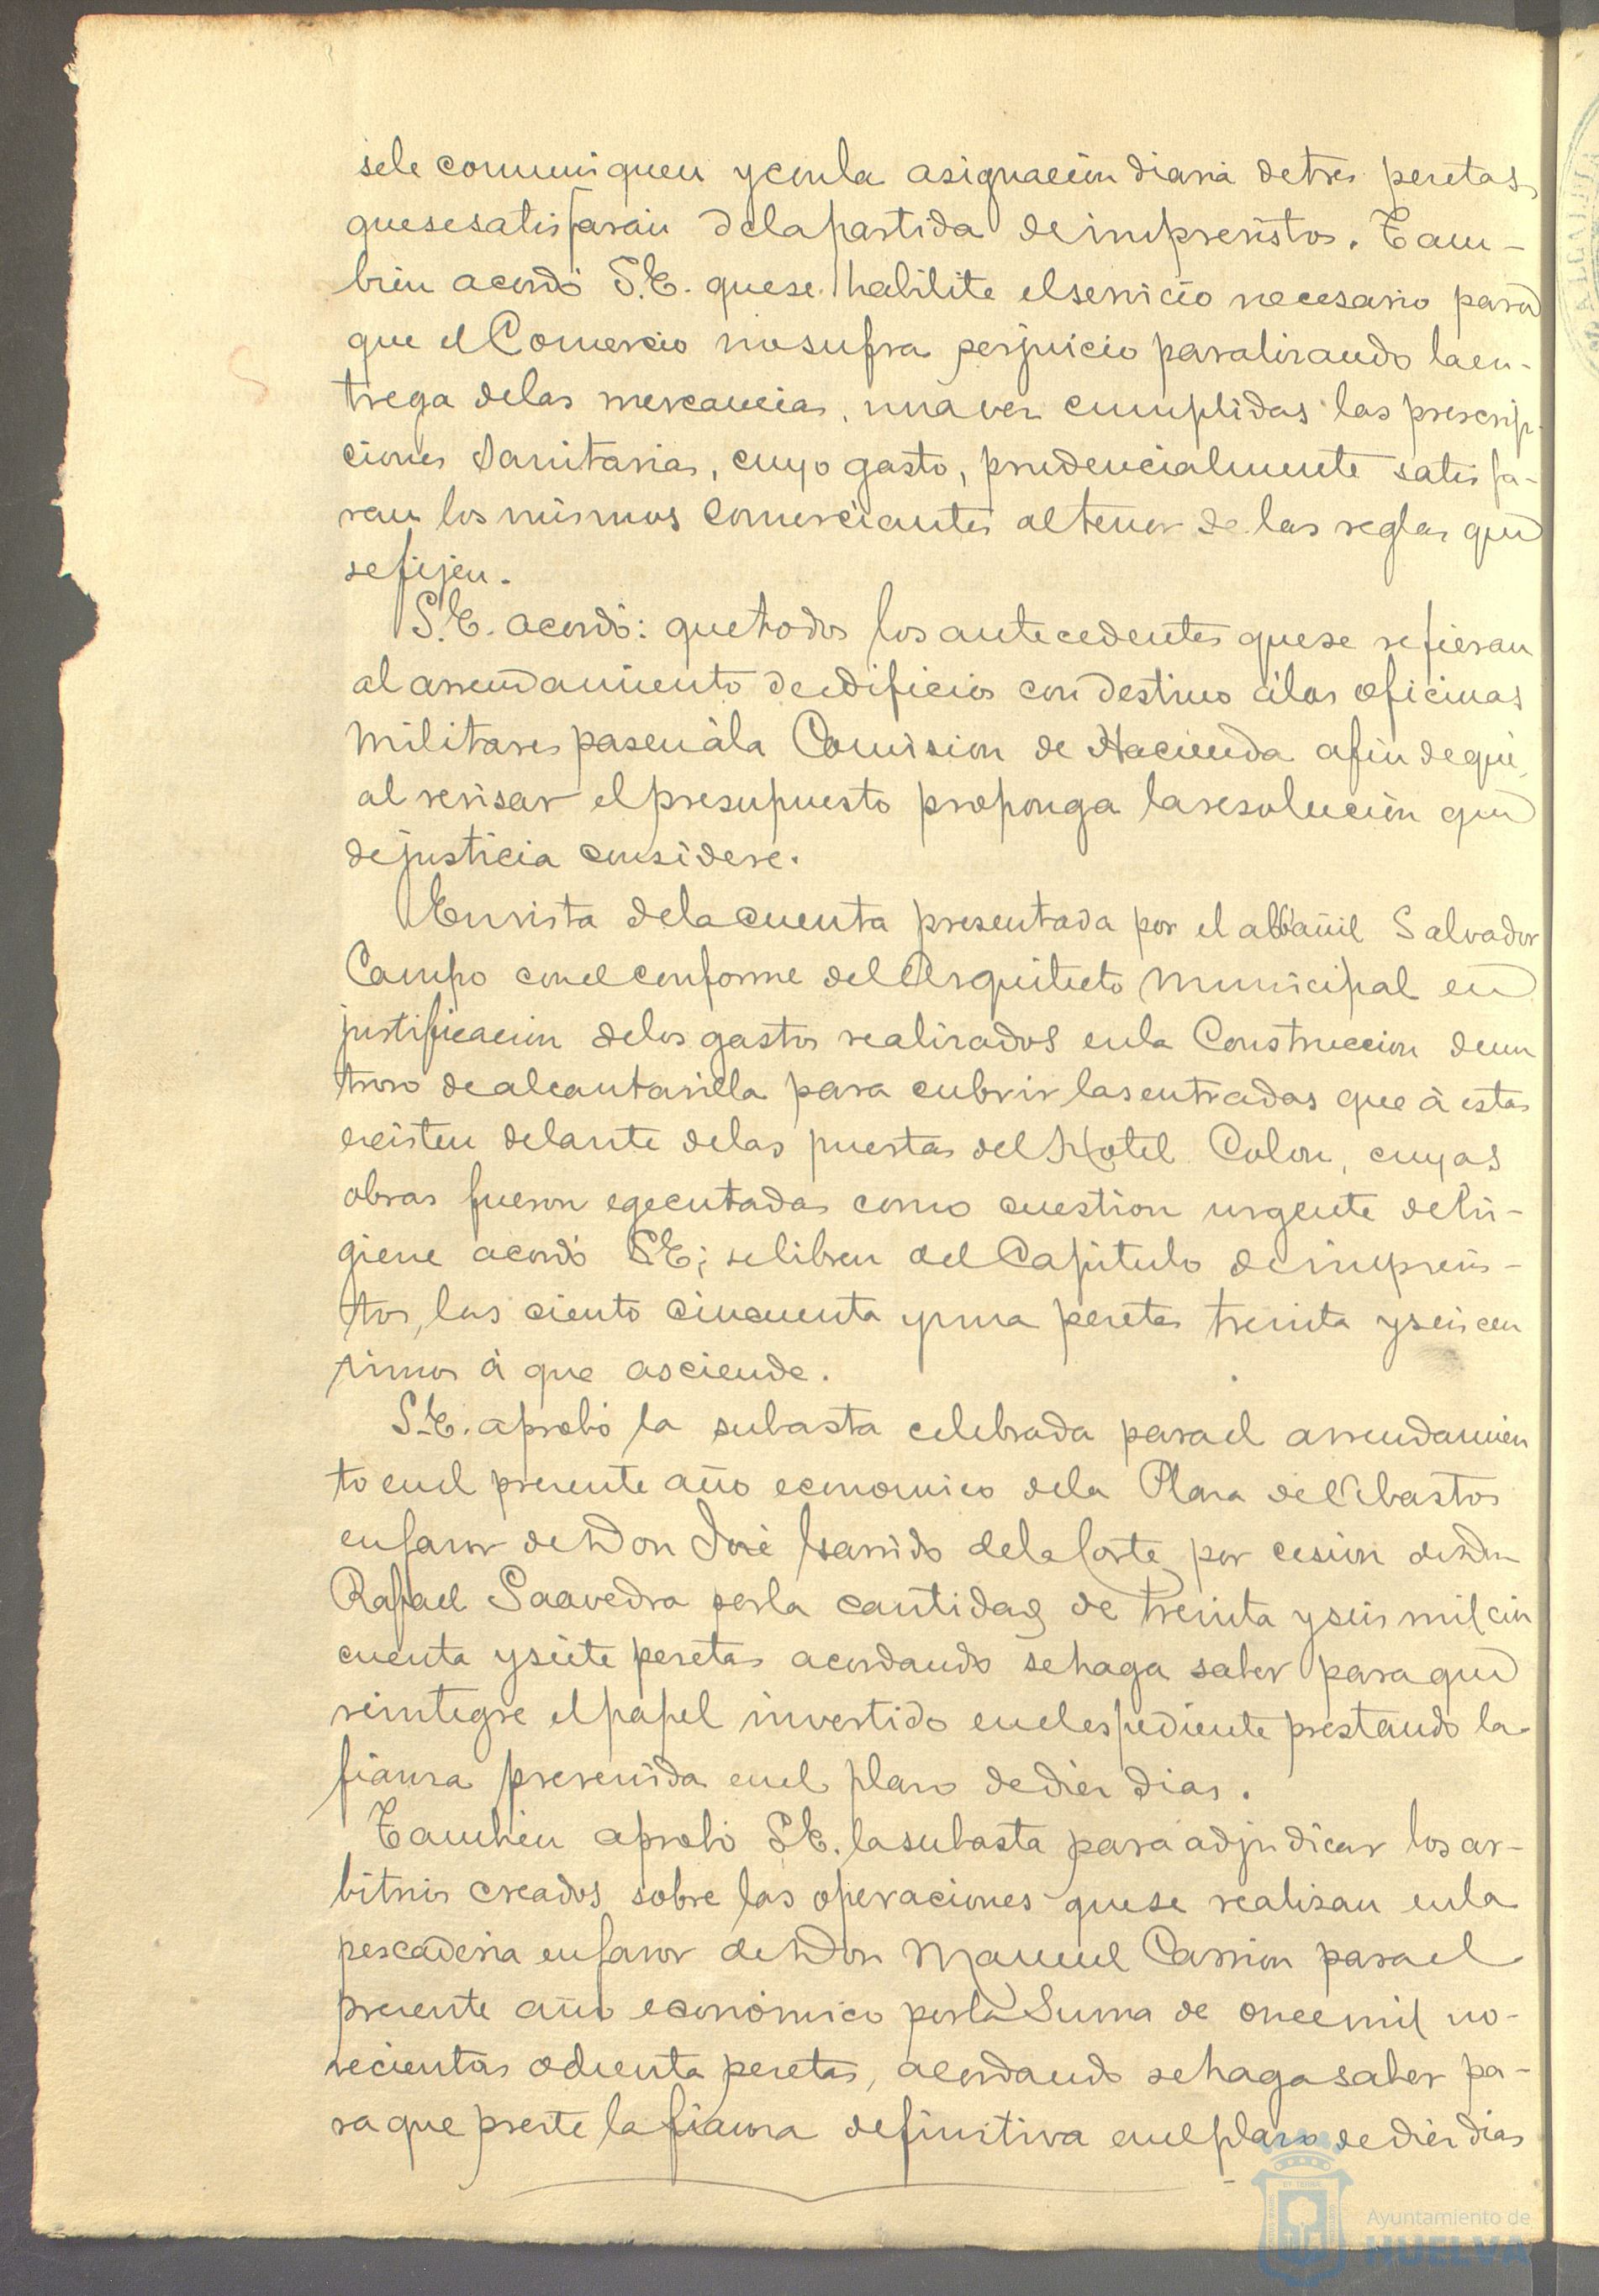 sele comuniquen y con la asignacion diaria de tres pesetas
que se satisfarán de la partida de imprevistos. Tam-
bien acordó S.E. que se habilite el servicio necesario para
que el Comercio no sufra perjuicio paralizando la en-
trega de las mercancias, una vez cumplidas las prescrip-
ciones Sanitarias, cuyo gasto, prudencialmente satisfa-
ran los mismos Comerciantes al tenor de las reglas que
se fijen.
S.E. acordó: que todos los antecedentes que se refieran
al arrendamiento de edificios con destino á las oficinas
Militares pasen á la Comision de Hacienda a fin de que
al revisar el presupuesto proponga la resolucion que
de justicia considere.
En vista de la cuenta presentada por el albañil Salvador
Campo con el conforme del Arquitecto Municipal en
justificacion de los gastos realizados en la Construccion de un
trozo de alcantarilla para cubrir las entradas que á estas
existen delante de las puertas del Hotel Colon, cuyas
obras fueron egecutadas como cuestion urgente de hi-
giene acordó S.E; se libren del Capitulo de imprevis-
tos, las ciento cincuenta y una pesetas treinta y seis cen
timos á que asciende.
S.E. aprobó la subasta celebrada para el arrendamien
to en el presente año economico de la Plaza de Abastos
en favor de Don José Garrido de la Corte por cesion de Don
Rafael Saavedra por la cantidad de treinta y seis mil cin
cuenta y siete pesetas acordando se haga saber para que
reintegre el papel invertido en el espediente prestando la
fianza prevenida en el plazo de diez dias.
Tambien aprobó S.E. la subasta para adjudicar los ar-
bitrios creados sobre las operaciones que se realizan en la
pescaderia en favor de Don Manuel Carrion para el
presente año económico por la Suma de once mil no-
vecientas ochenta pesetas, acordando se haga saber pa-
ra que preste la fianza definitiva en el plazo de diez dias
Ayuntamiento de
HUELVA